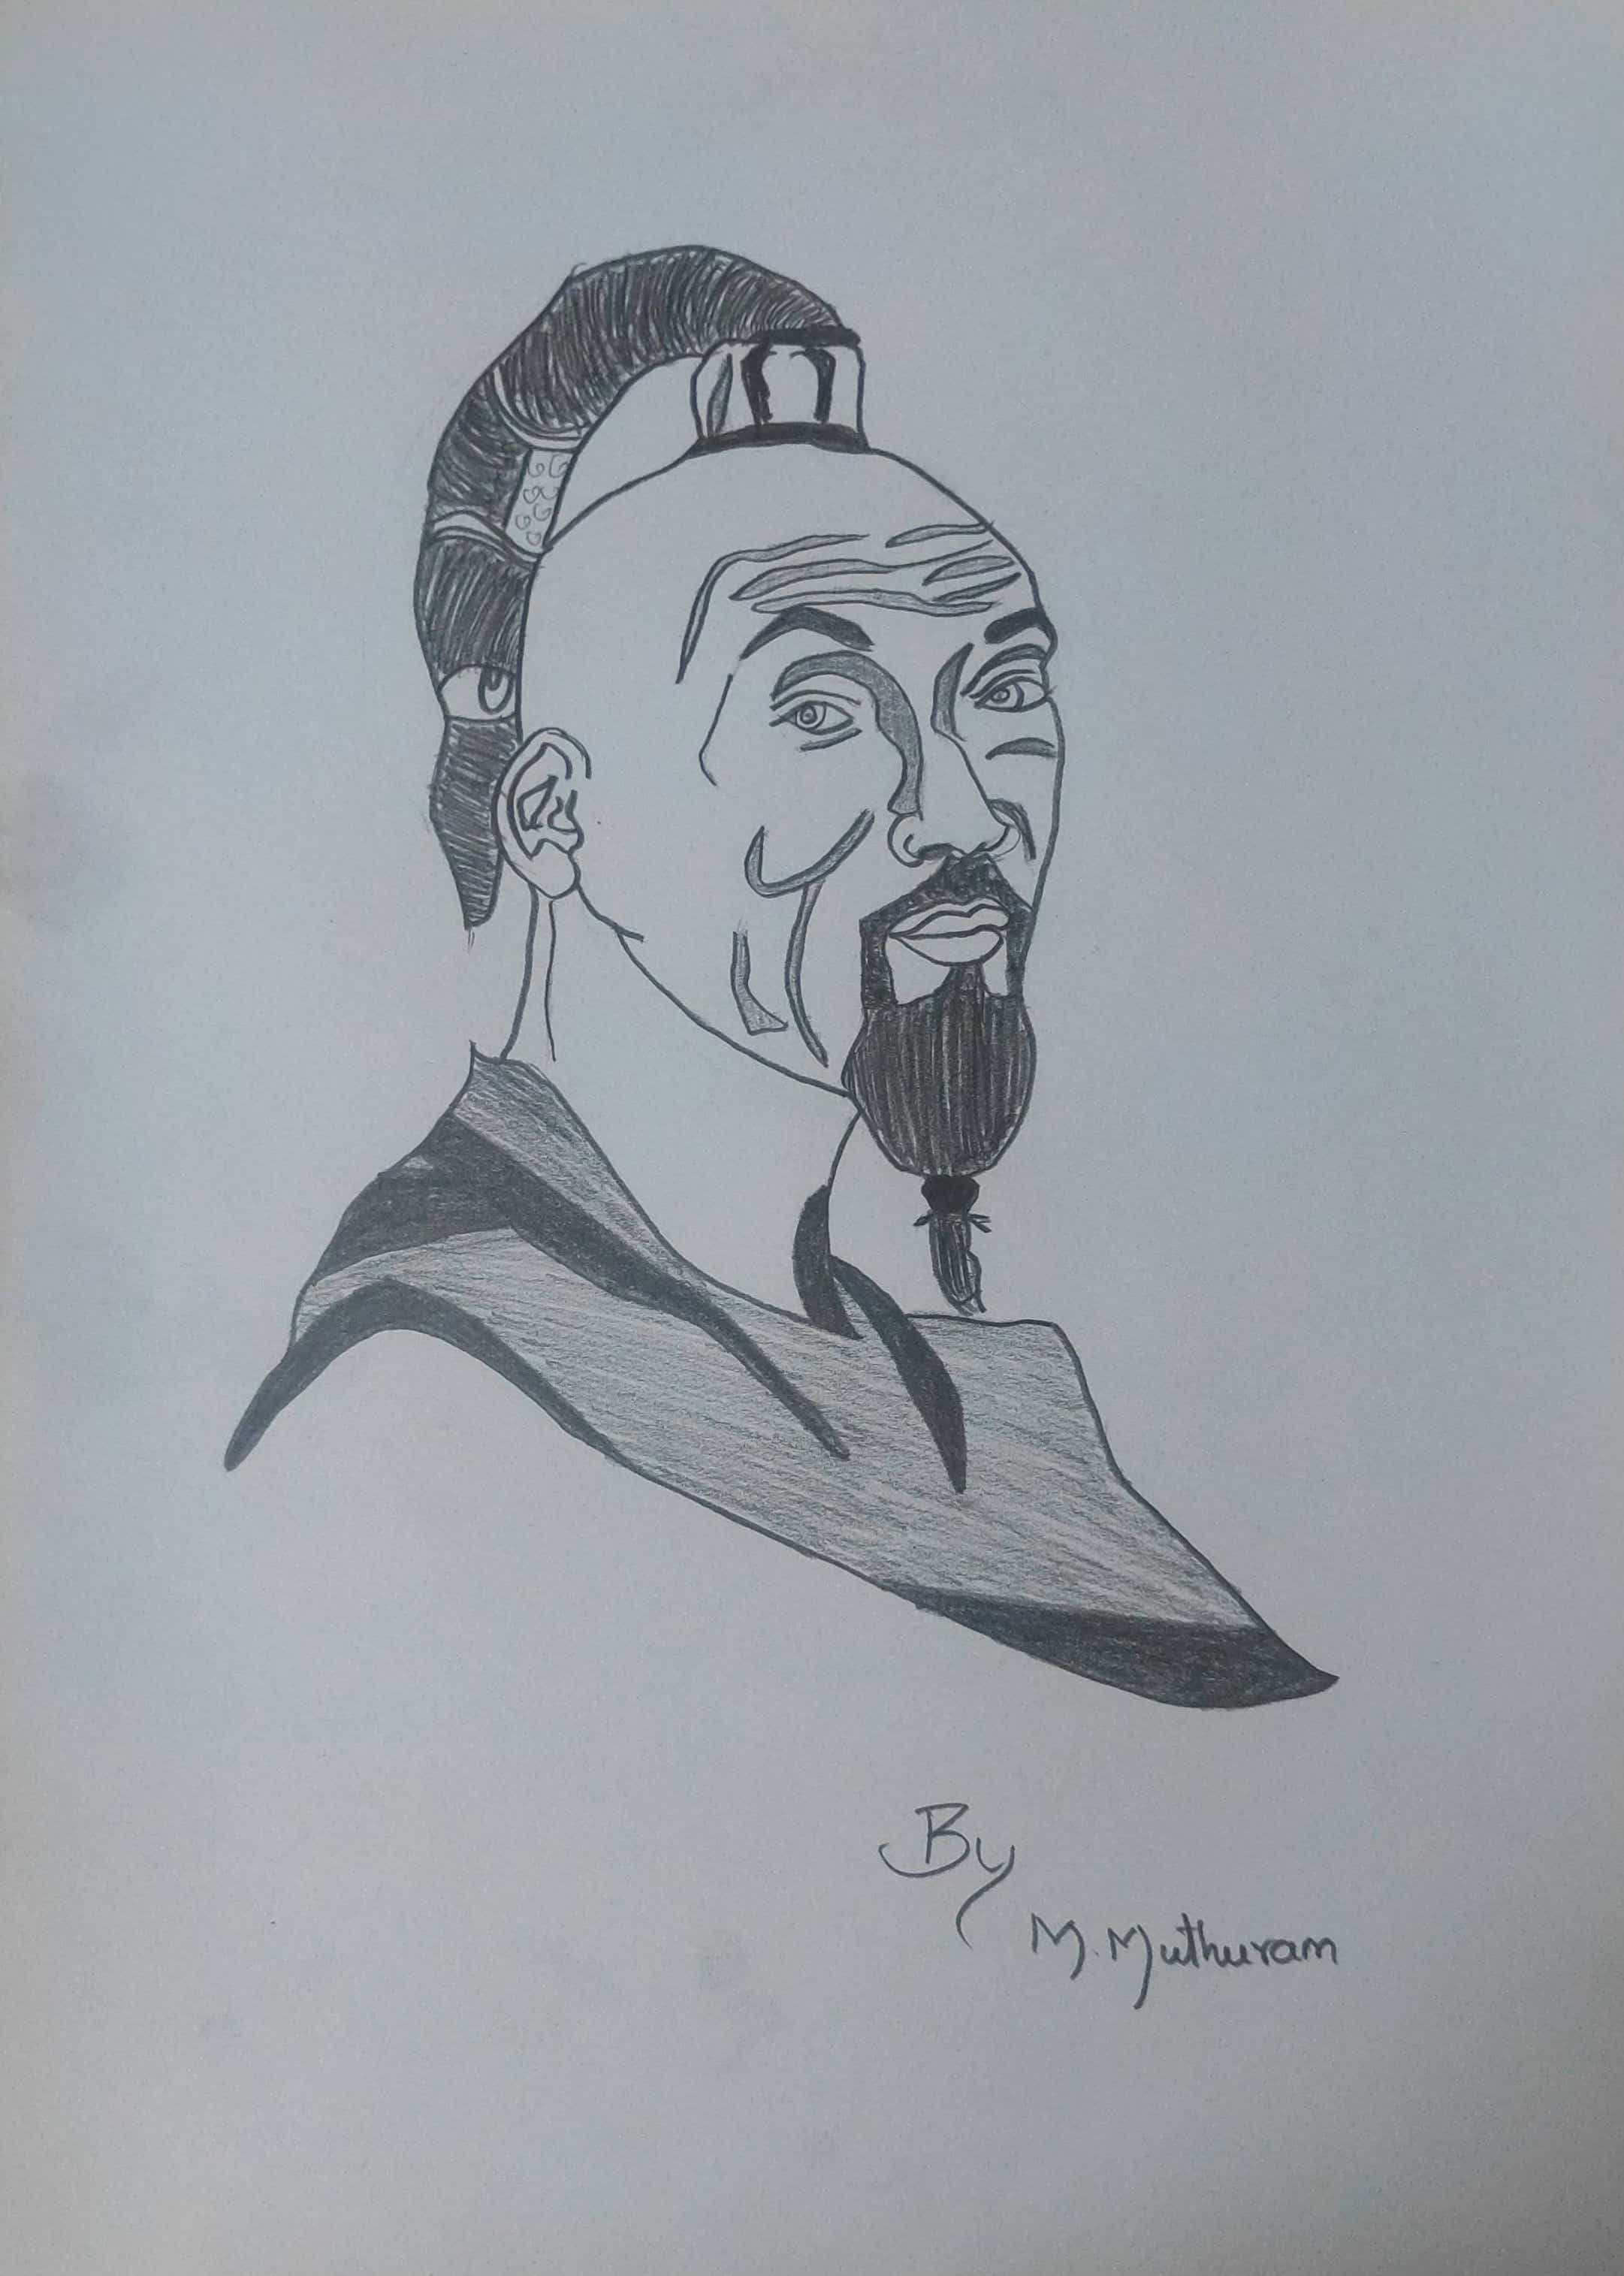 By
M. Muthuram